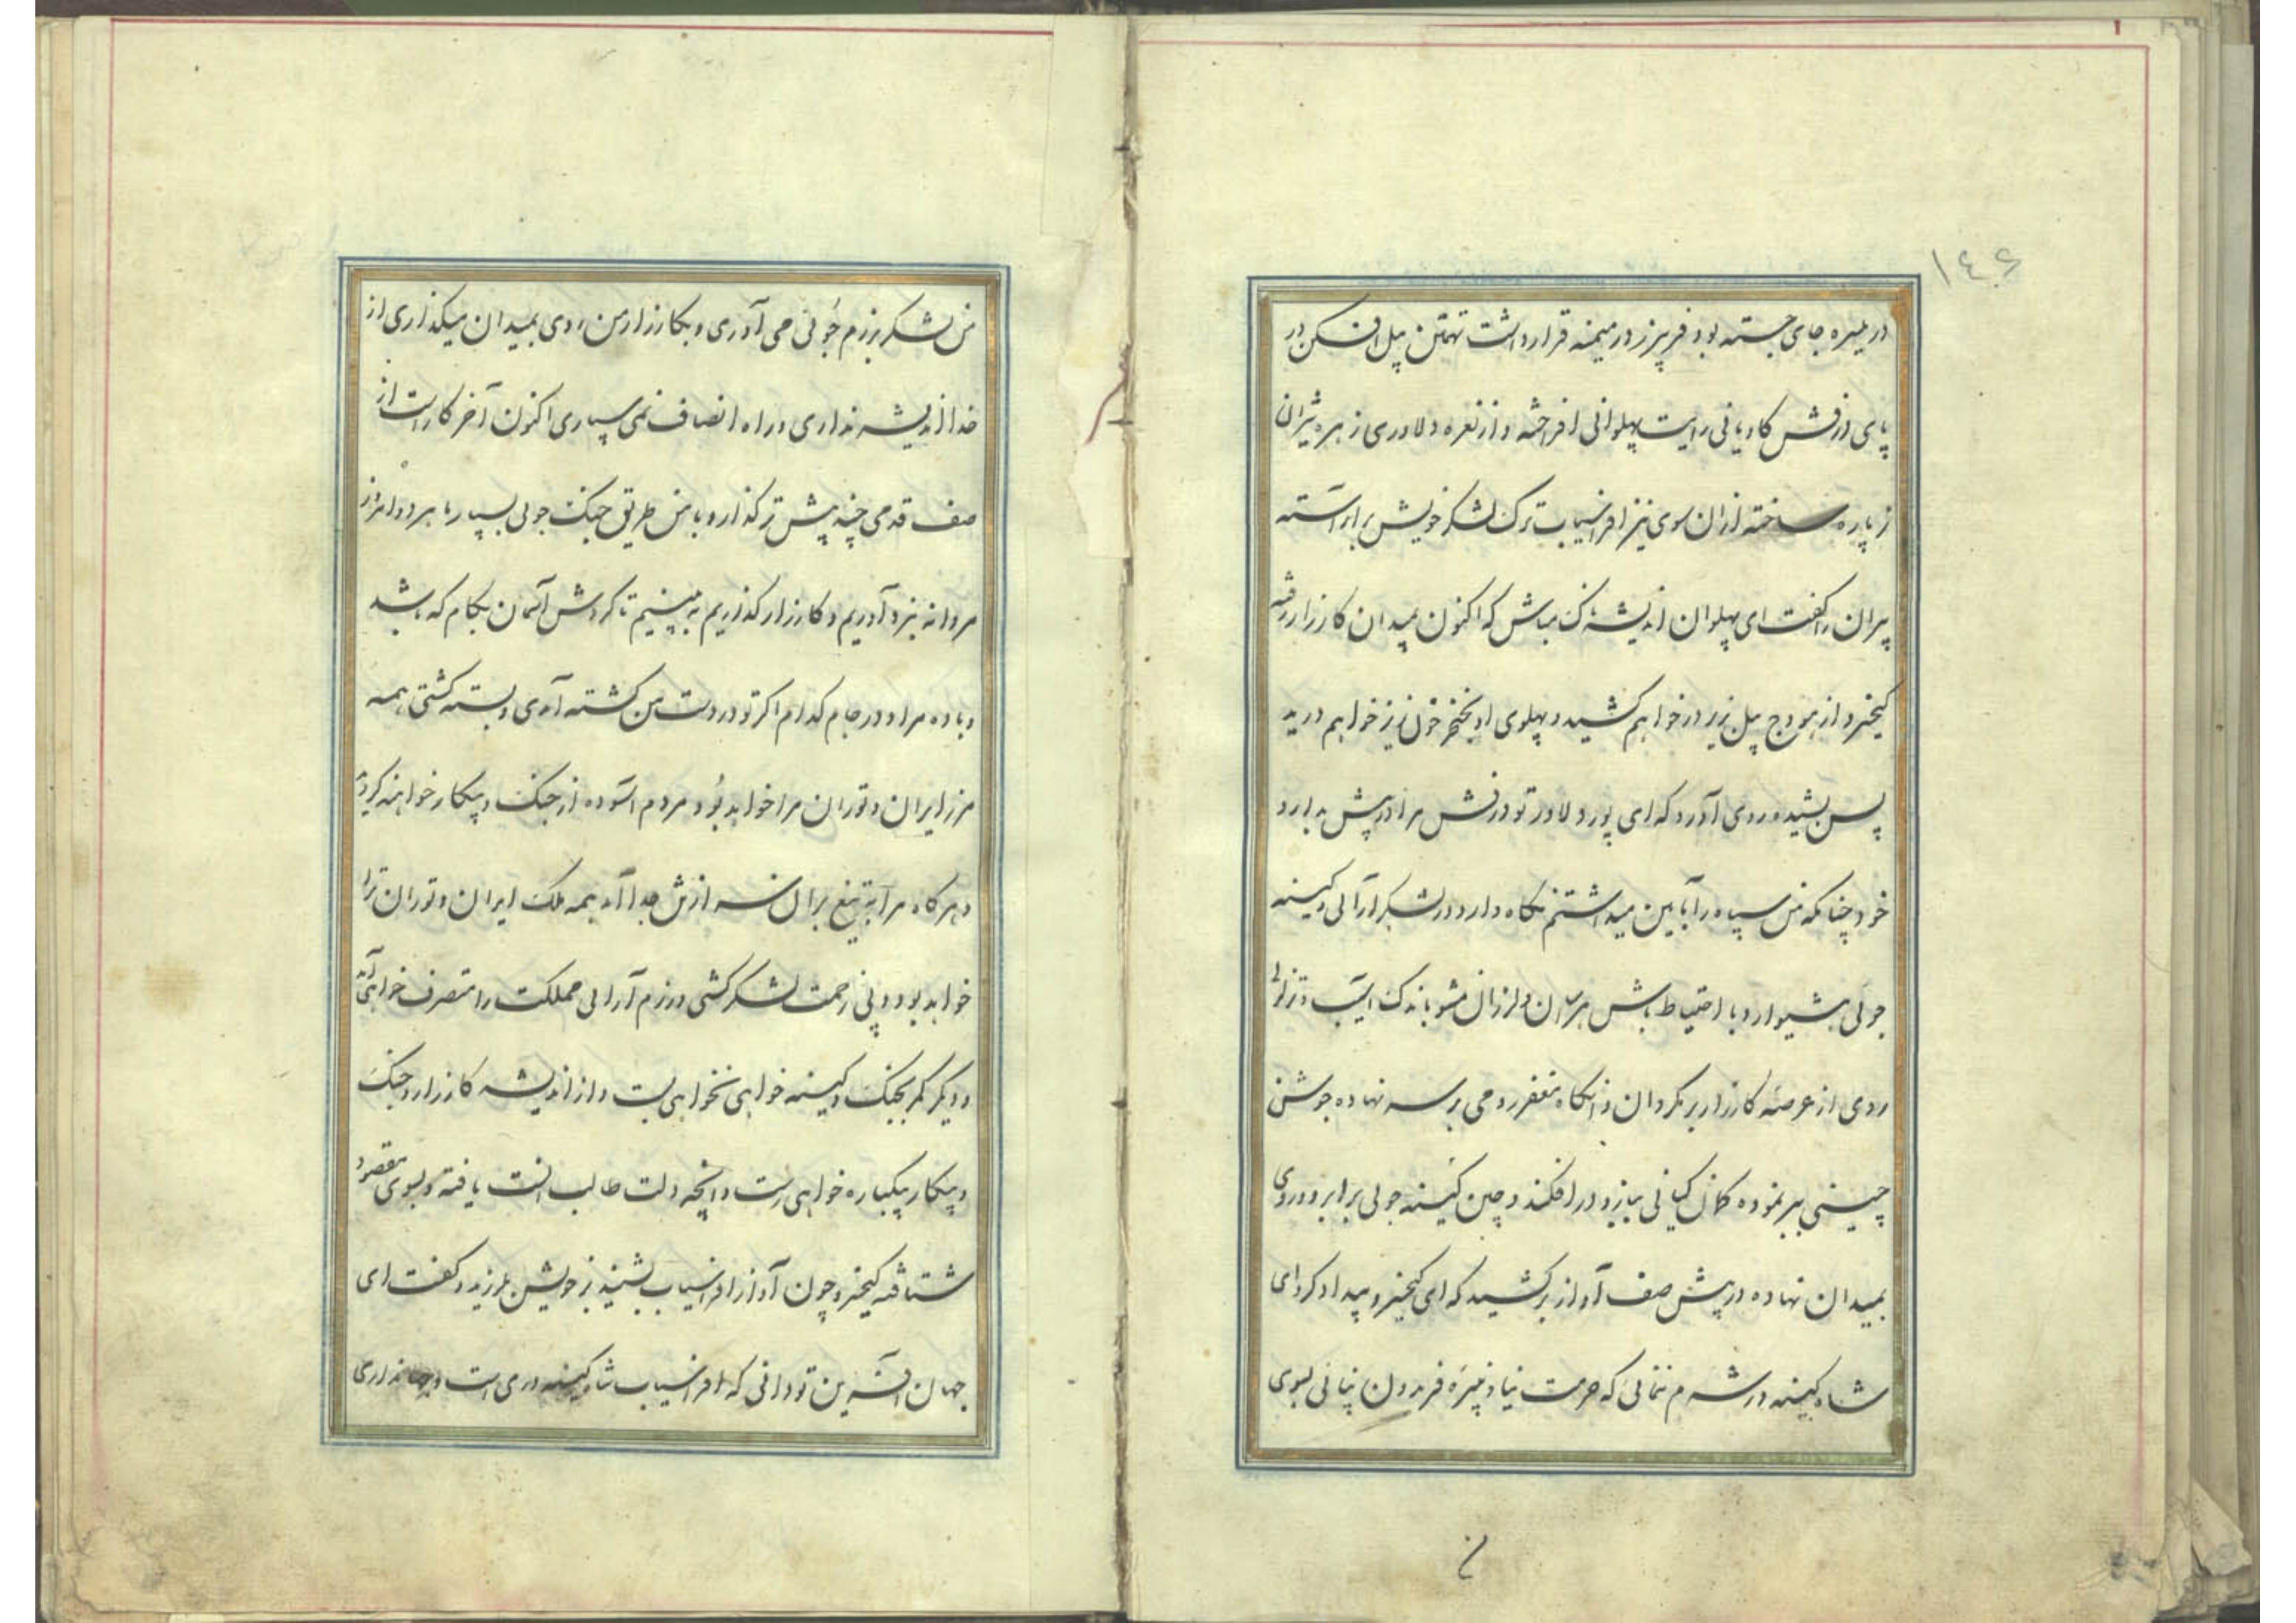 ١٤٦
در میسره جای جسته بود فریبرز در میمنه قرار داشت تهمتن پیل افکن در
پای درفش کاویانی رایت پهلوانی افراخته و از نعره دلاوری زهره شیران
را پاره ساخته از آن سوی نیز افراسیاب ترک لشکر خویش برابر آراسته
پیران را گفت ای پهلوان اندیشه ناک مباش که اکنون بمیدان کارزار رفته
کیخسرو از هودج پیل زیر در خواهم کشید و پهلوی او بخنجر خون ریز خواهم درید
پس بشیده روی آورد که ای پور دلاور تو درفش مرا در پیش بدارد
خود چنانکه من سپاه را بآیین میداشتم نگاه دار و در لشکر آرائی و کینه
جوئی هشیوار و با احتیاط باش هراسان و لرزان مشو باندک آسیب و تزلزل
روی از عرصه کارزار بر مگردان و آنگاه مغفر رومی بر سر نهاده جوشن
چینی ببر نموده کمان کیانی ببازو در افکند و چین کینه جوئی برابرو و روی
بمیدان نهاده در پیش صف آواز برکشید که ای کیخسرو بیدادگر دای
شاه کینه ور شرم نمائی که حرمت نیا و نبیره فریدون نپائی بسوی
ن
من لشکر برزم جوئی می آوری و بکارزار من روی بمیدان میگذاری از
خدا اندیشه نداری و راه انصاف نمی سپاری اکنون آخر کار است از
صف قدمی چند پیش تر گذار و با من طریق جنگ جوئی بسپار تا هر دو امروز
مردانه نبرد آوریم و کارزار گذاریم به بینیم تا گردش آسمان بکام که باشد
و باده مراد در جام کدام اگر تو در دست من کشته آمدی و بسته گشتی همه
مرز ایران و توران مرا خواهد بود و مردم آسوده از جنگ و پیکار خواهند گردید
و هرگاه مرا به تیغ بران سر از تن جدا آمد همه ملک ایران و توران ترا
خواهد بود و بی زحمت لشکر کشی و رزم آرائی مملکت را متصرف خواهی آمد
و دیگر کمر بجنگ و کینه خواهی نخواهی بست و از اندیشه کارزار و جنگ
و پیکار یکباره خواهی رست و آنچه دلت طالب آنست یافته و بسوی مقصود
شتافته کیخسرو چون آواز افراسیاب بشنید بر خویش بلرزید و گفت ای
جهان آفرین تو دانی که افراسیاب شاه کینه وری است و نداری